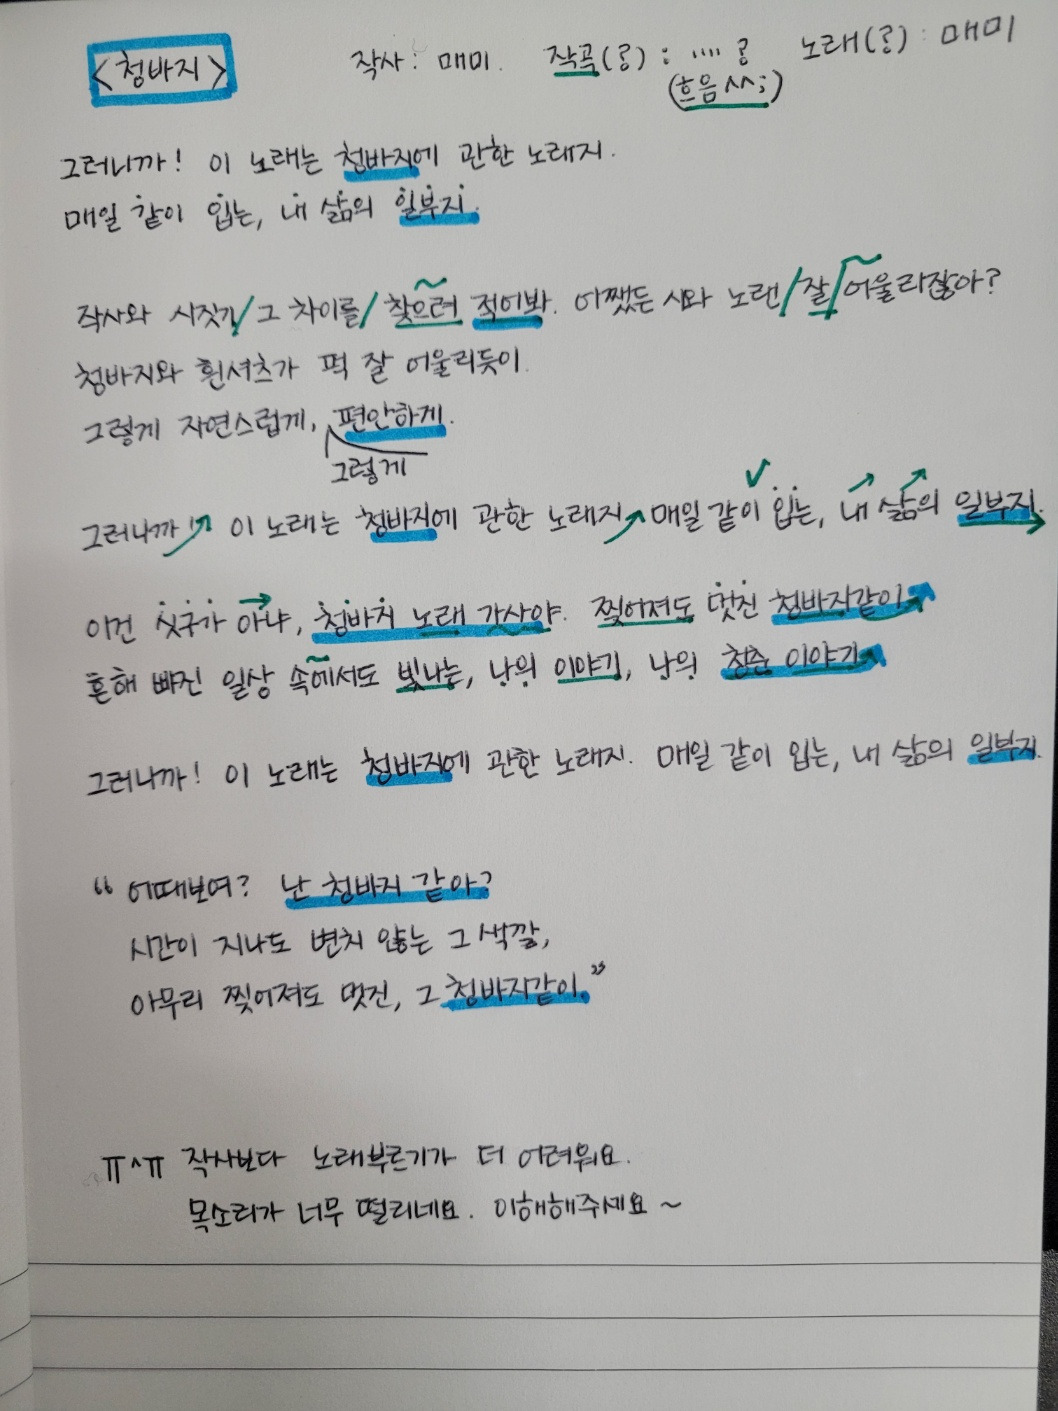 <청바지> 작사: 매미. 작곡(?): .... ? 노래(?): 매미
(흐음^^;)
그러니까! 이 노래는 청바지에 관한 노래지.
매일 같이 입는, 내 삶의 일부지.
작사와 시짓기/그 차이를/찾으려 적어봐. 어쨌든 시와 노랜/잘/어울리잖아?
청바지와 흰셔츠가 퍽 잘 어울리듯이.
그렇게 자연스럽게, 편안하게.
그렇게
그러니까! 이 노래는 청바지에 관한 노래지 매일 같이 입는, 내 삶의 일부지.
이건 싯구가 아냐, 청바지 노래 가사야. 찢어져도 멋진 청바지같이
흔해 빠진 일상 속에서도 빛나는, 나의 이야기, 나의 청춘 이야기
그러니까! 이 노래는 청바지에 관한 노래지. 매일 같이 입는, 내 삶의 일부지.
“어때보여? 난 청바지 같아?
시간이 지나도 변치 않는 그 색깔,
아무리 찢어져도 멋진, 그 청바지같이.”
ㅠ^ㅠ 작사보다 노래부르기가 더 어려워요.
목소리가 너무 떨리네요. 이해해주세요~